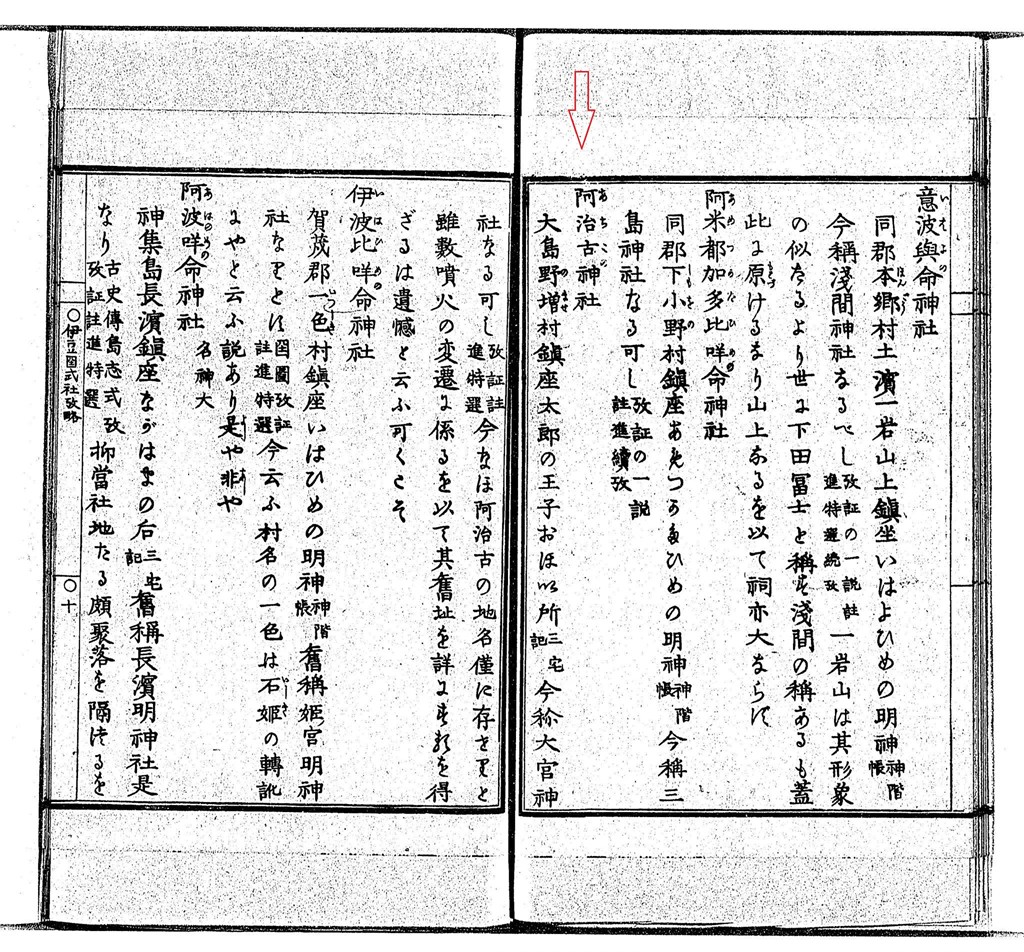 意波與命神社
同郡本郷村土濱一岩山上鎮坐いはよひめの明神神階帳
今稱淺間神社なるべし攷証の一説註進特選続攷一岩山は其形象
の似たるより世に下田冨士と稱す淺間の稱あるも蓋
此に原けるなり山上なるを以て祠亦大ならず
阿米都加多比咩命神社
同郡下小野村鎮座あめつかたひめの明神神階帳今稱三
島神社なる可し攷証の一説註進續攷
阿治古神社
大島野増村鎮座太郎の王子おほい所三宅記今称大宮神
社なる可し攷証註進特選今なほ阿治古の地名僅に存せりと
雖數噴火の変遷に係るを以て其舊址を詳にするを得
ざるは遺憾と云ふ可くこそ
伊波比咩命神社
賀茂郡一色村鎮座いはひめの明神神階帳舊稱姫宮明神
社なりとは国圖攷証註進特選今云ふ村名の一色は石姫の轉訛
にやと云ふ説あり是や非や
阿波咩命神社名神大
神集島長濱鎮座ながはまの后三宅記舊稱長濱明神社是
なり古史傳島志式攷攷証註進特選抑當社地たる頗聚落を隔たるを
〇伊豆国式社攷略
〇十